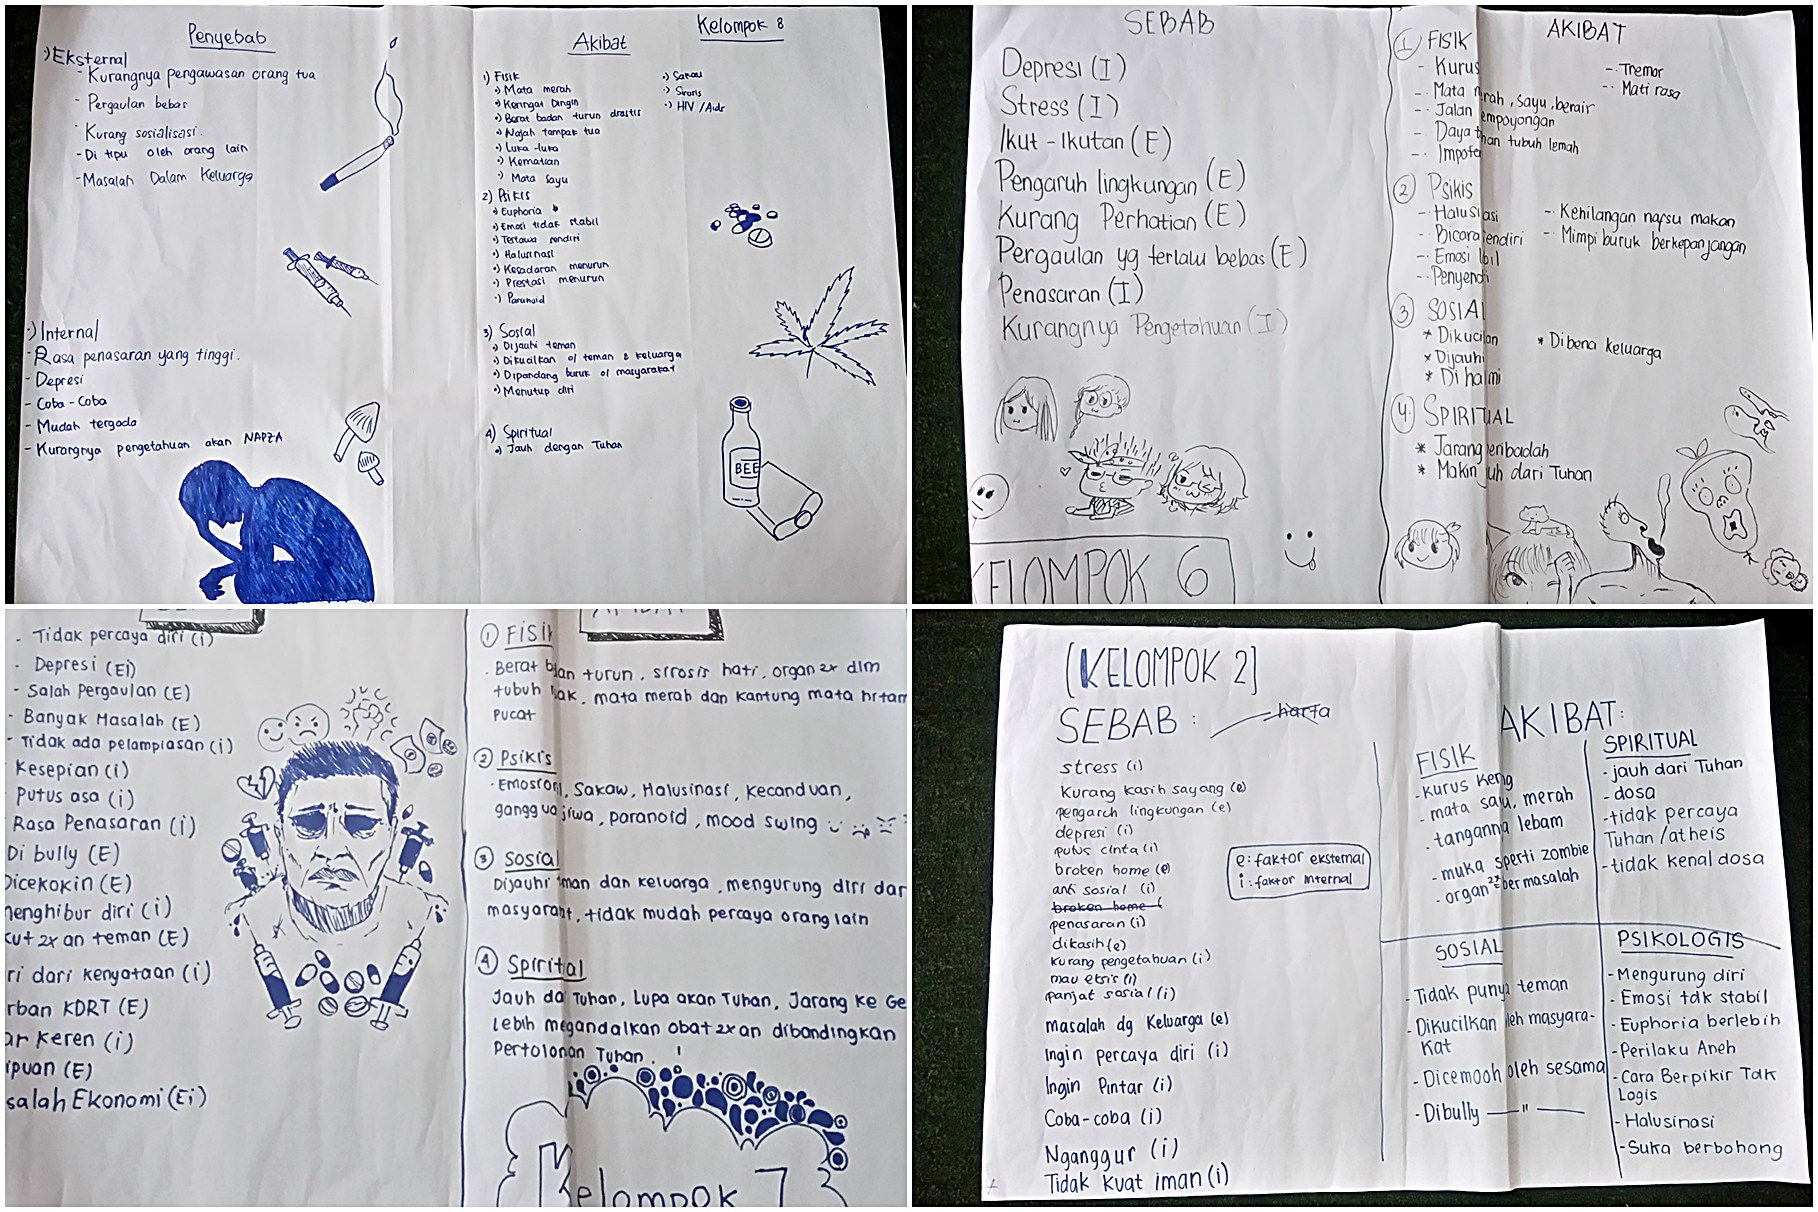 Penyebab
·) Eksternal
- Kurangnya pengawasan orang tua
- Pergaulan bebas
- Kurang sosialisasi.
- Di tipu oleh orang lain
- Masalah Dalam Keluarga
·) Internal
- Rasa penasaran yang tinggi.
- Depresi
- Coba-Coba
- Mudah tergoda
- Kurangnya pengetahuan akan NAPZA
Akibat
1) Fisik
·) Mata merah
·) Keringat Dingin
·) Berat badan turun drastis
·) Wajah tampak tua
·) Luka-luka
·) Kematian
·) Mata Sayu
2) Psikis
·) Euphoria
·) Emosi tidak stabil
·) Tertawa sendiri
·) Halusinasi
·) Kesadaran menurun
·) Prestasi menurun
·) Paranoid
3) Sosial
·) Dijauhi teman
·) Dikucilkan o/ teman & keluarga
·) Dipandang buruk o/ masyarakat
·) Menutup diri
4) Spiritual
·) Jauh dengan Tuhan
Kelompok 8
·) Sakau
·) Sirosis
·) HIV/Aids
BEE
SEBAB
Depresi (I)
Stress (I)
Ikut-Ikutan (E)
Pengaruh lingkungan (E)
Kurang Perhatian (E)
Pergaulan yg terlalu bebas (E)
Penasaran (I)
Kurangnya Pengetahuan (I)
KELOMPOK 6
AKIBAT
1 FISIK
- Kurus
- Mata rah, sayu, berair
- Jalan empoyongan
- Daya han tubuh lemah
- Impote
- Tremor
- Mati rasa
2 Psikis
- Halusi asi
- Bicara endiri
- Emosi bil
- Penyendi
- Kehilangan nafsu makan
- Mimpi buruk berkepanjangan
3 SOSIAL
* Dikucilan
* Dijauhi
* Di ha mi
* Dibena keluarga
4. SPIRITUAL
* Jarang eribadah
* Makin uh dari Tuhan
- Tidak percaya diri (i)
- Depresi (Ei)
- Salah Pergaulan (E)
- Banyak Masalah (E)
- Tidak ada pelampiasan (i)
Kesepian (i)
Putus asa (i)
Rasa Penasaran (i)
Di bully (E)
Dicekokin (E)
menghibur diri (i)
kut 2x an teman (E)
ri dari kenyataan (i)
rban KDRT (E)
ar keren (i)
ipuan (E)
salah Ekonomi (Ei)
1 FISIK
- Berat b an turun, sirosis hati, organ 2x dlm
tubuh ak, mata merah dan kantung mata hitam
Pucat
2 Psikis
- Emosion, Sakaw, Halusinasi, Kecanduan,
ganggua jiwa, paranoid, mood swing
3 Sosial
Dijauhi man dan keluarga, mengurung diri dar
masyarat, tidak mudah percaya orang lain
4 Spirital
Jauh da Tuhan, Lupa akan Tuhan, Jarang ke Ge
Lebih megandalkan obat 2x an dibandingkan
Pertolonan Tuhan.
Kelompok 7
[KELOMPOK 2]
SEBAB :
harta
stress (i)
Kurang kasih sayang (e)
pengaruh lingkungan (e)
depresi (i)
putus cinta (i)
broken home (e)
anti sosial (i)
broken home (
penasaran (i)
dikasih (e)
kurang pengetahuan (i)
mau eksis (i)
panjat sosial (i)
masalah dg Keluarga (e)
Ingin percaya diri (i)
Ingin Pintar (i)
Coba-coba (i)
Nganggur (i)
Tidak kuat iman (i)
e : faktor eksternal
i : faktor internal
AKIBAT:
FISIK
- kurus keng
- mata sayu, merah
- tanganna lebam
- muka sperti zombie
- organ 2x bermasalah
SPIRITUAL
- jauh dari Tuhan
- dosa
- tidak percaya
Tuhan/atheis
- tidak kenal dosa
SOSIAL
- Tidak punya teman
- Dikucilkan oleh masyara-
kat
- Dicemooh oleh sesama
- Dibully — " —
PSIKOLOGIS
- Mengurung diri
- Emosi tdk stabil
- Euphoria berlebih
- Perilaku Aneh
- Cara Berpikir Tdk
Logis
- Halusinasi
- Suka berbohong